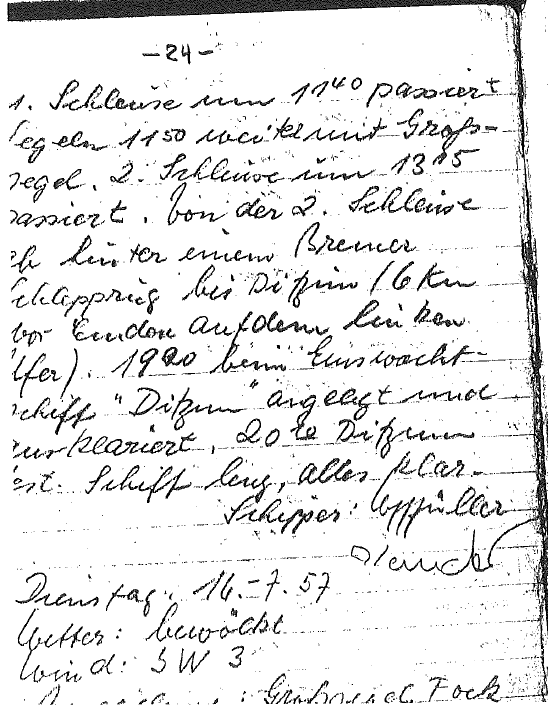 - 24 -
1. Schleuse um 11⁴⁰ passiert
egeln 11⁵⁰ weiter mit Groß-
segel. 2. Schleuse um 13¹⁵
passiert. Von der 2. Schleuse
ab hinter einem Bremer
Schleppzug bis Ditzum (6 Km
vor Emden auf dem linken
Ufer). 19²⁰ beim
schiff "Ditzum" angelegt und
ausklariert. 20 Ditzum
fest. Schiff leng, alles klar-
Schipper:
Dienstag. 16.-7.57
Wetter: bewölkt
Wind: SW 3
Großs. und Fock